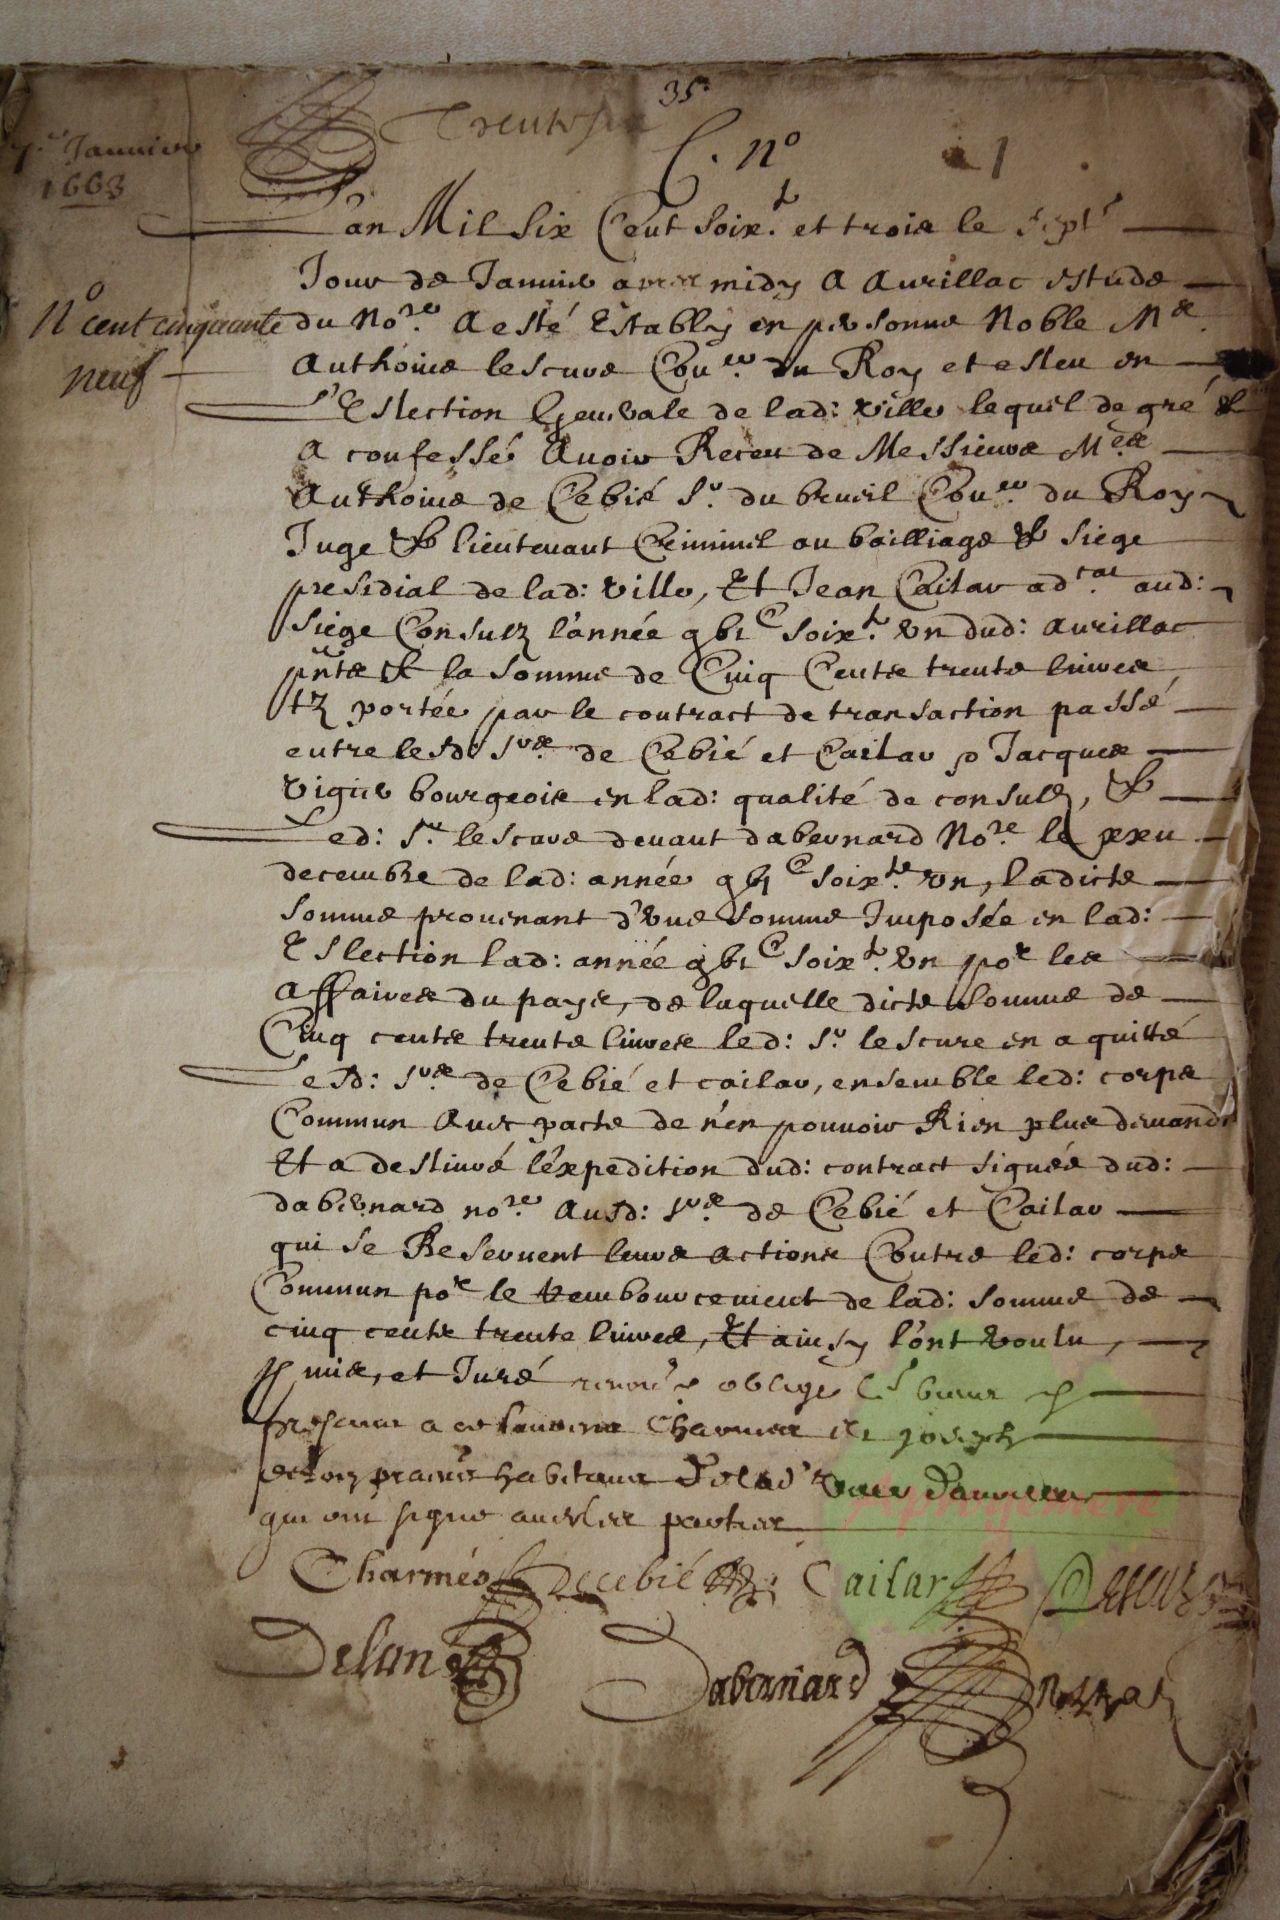 35
C. n°
1
7e Januier
1663
L'an Mil Six Cent Soixt. et trois le Septe
Jour de Januier auant midy A Aurillac estude
n° cent cinquante
neuf
du Nore. A esté Estably en personne Noble Me.
Anthoine lescure Couer. du Roy et esleu en
l'Eslection Generale de lad: ville lequel de gré &
A confessé Auoir Receu de Messieurs Mes
Anthoine de Cebié Sr. du brueil Couer. du Roy
Juge & lieutenant Criminel au bailliage & siege
presidial de lad: ville, Et Jean Cailar adcat. aud:
Siege Consulz l'année gbic Soixt. Vn dud: aurillac
pnts & la somme de Cinq Cents trente liures
tz portée par le contract de transaction passé
entre lesd: Srs. de Cebié et Cailar, Jacques
Vigier bourgeois en lad: qualité de consulz, &
Led: Sr. lescure deuant dabernard Nore le xxeu
decembre de lad: année gbic Soixte. Vn, ladicte
Somme prouenant d'vne Somme Imposée en lad:
Eslection lad: année gbic Soixt. Vn por les
Affaires du pays, de laquelle dicte Somme de
Cinq cents trente liures led: Sr. lescure en a quitté
Lesd: Srs. de Cebié et cailar, ensemble led: corps
Commun Auec pacte de n'en pouuoir Rien plus demander
Et a desliuré l'expedition dud: contract signée dud:
dabernard nore. Ausd: Srs. de Cebié et Cailar
qui se Reseruent leurs actions Contre led: corps
Commun por le Rembourcement de lad: Somme de
cinq cents trente liures, Et ainsy l'ont voulu,
mis, et Juré oblige biens
habitans
qui ont signé auec les parties
Charmes Decebié Cailar
Delon Dabernard